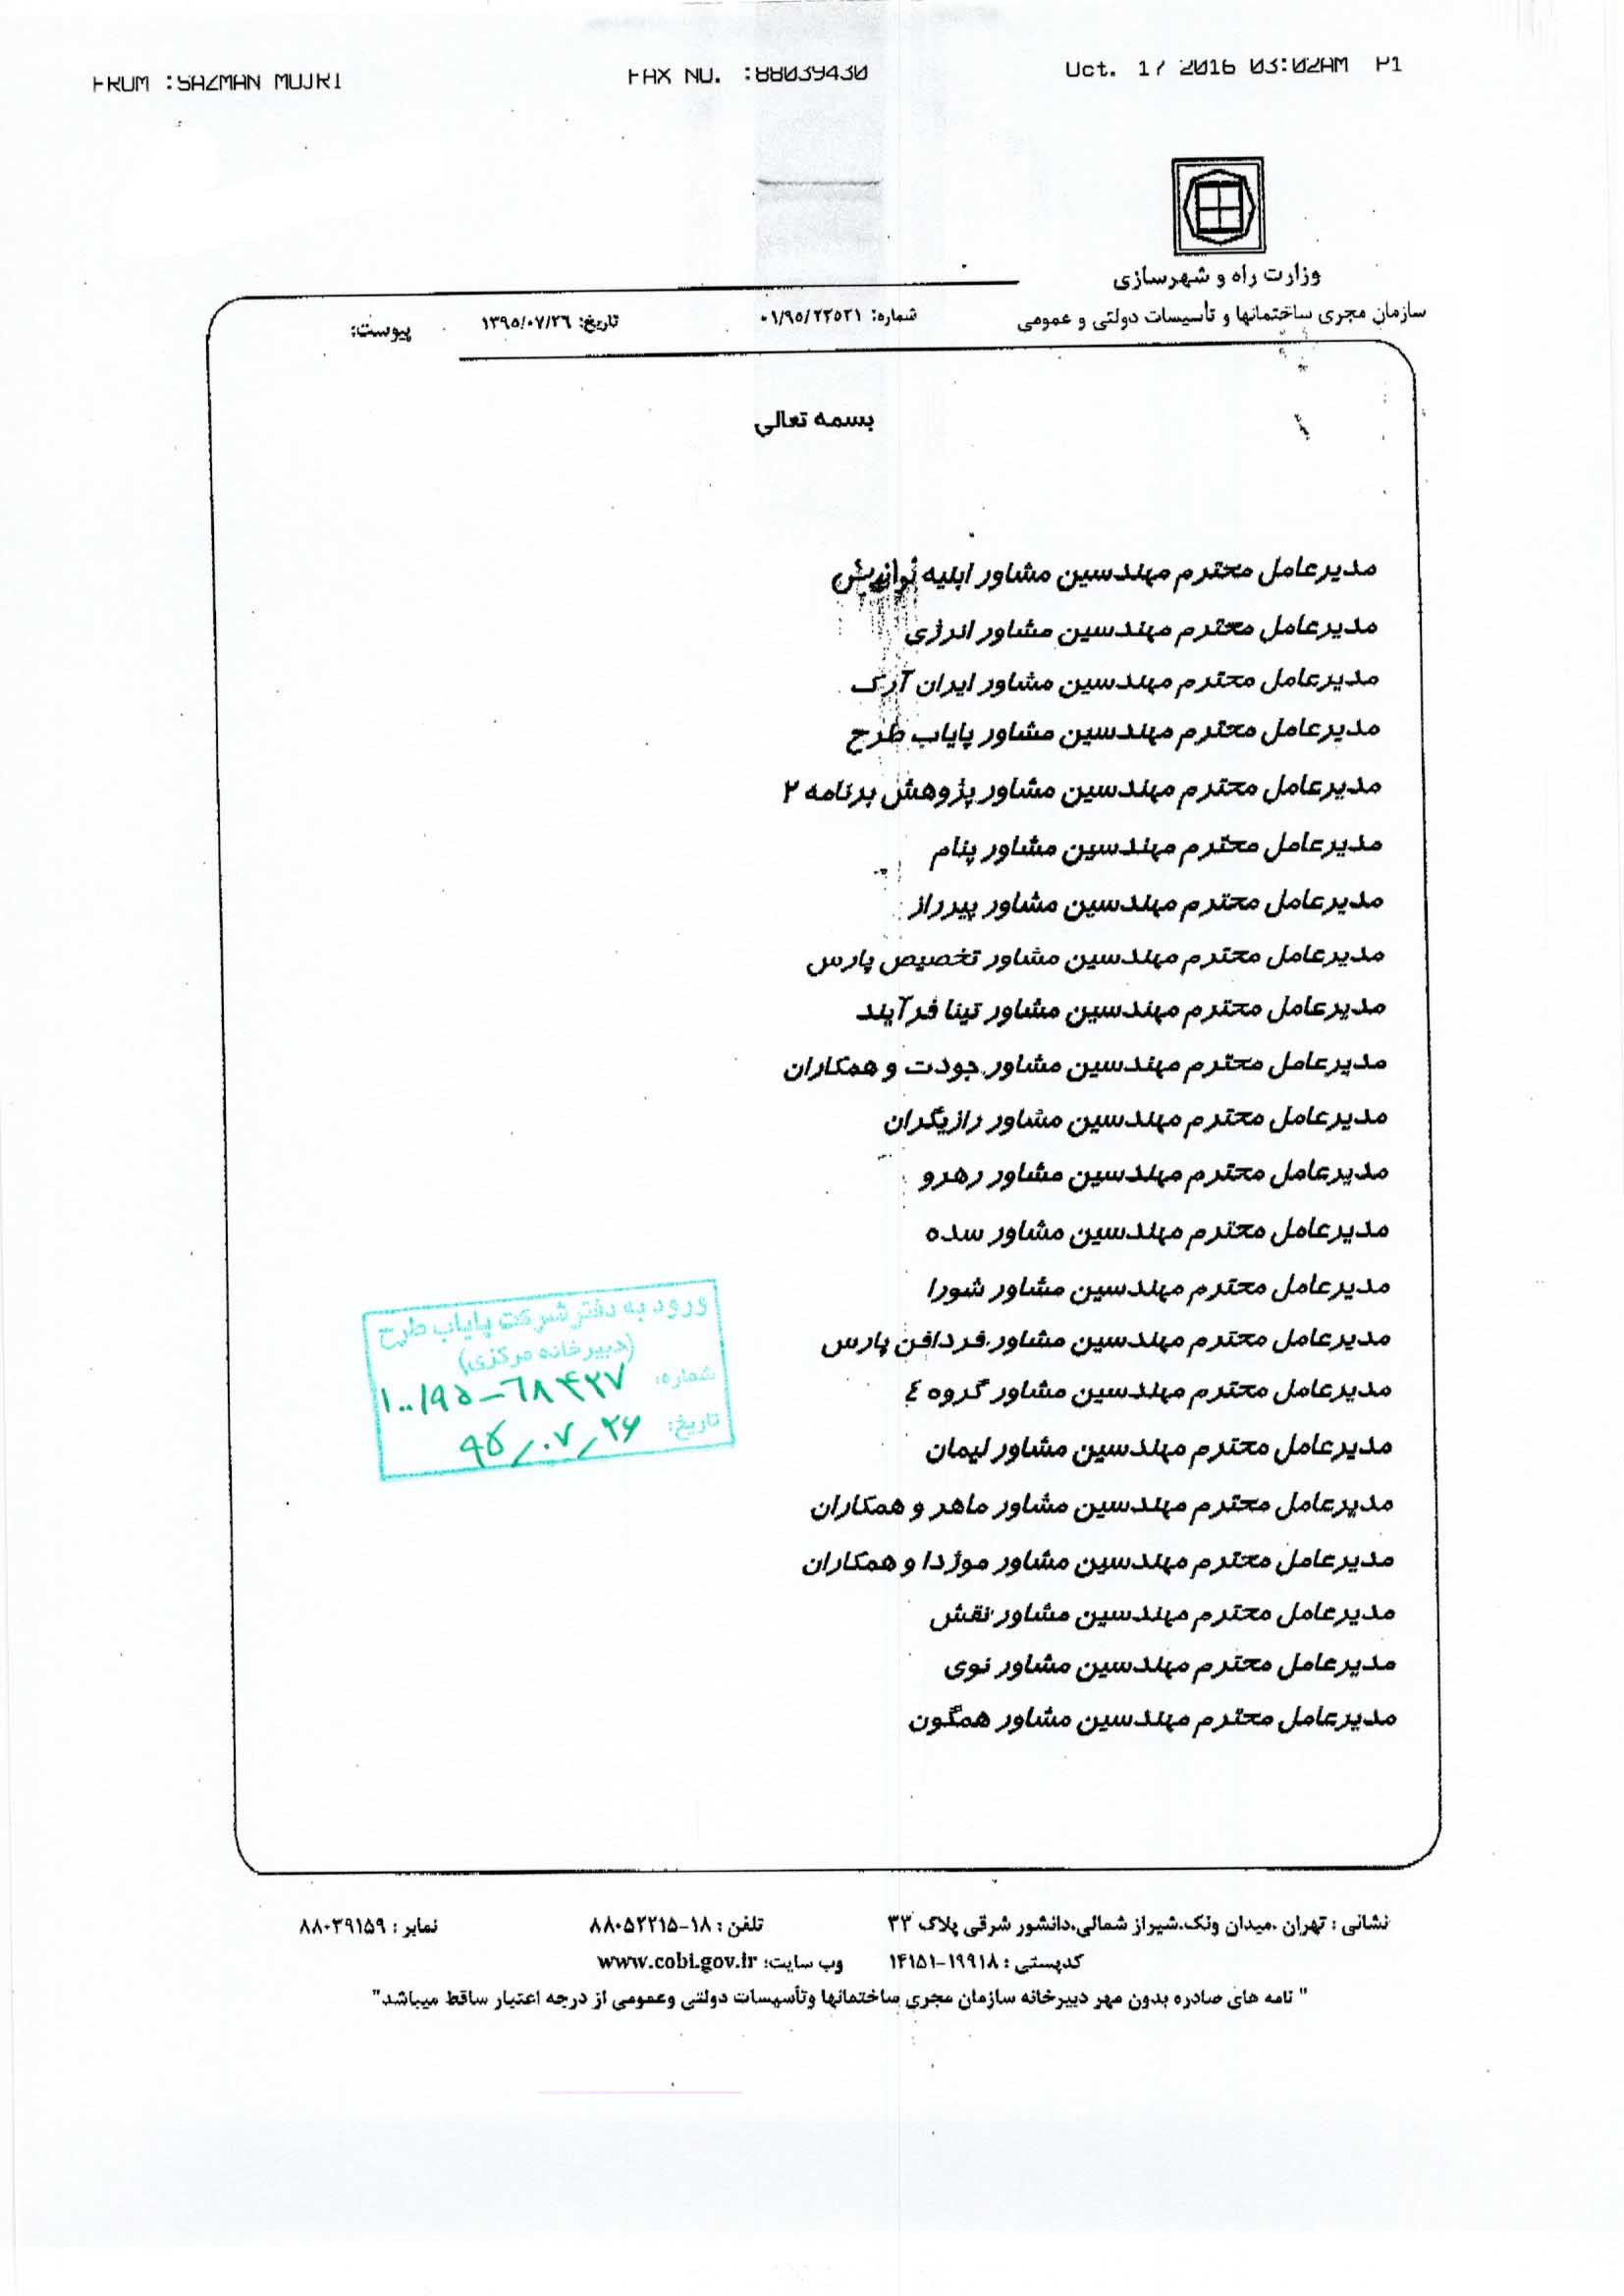 FROM :SAZMAN MOJRI FAX NO. :88039430 Oct. 17 2016 03:02AM P1
وزارت راه و شهرسازی
سازمان مجری ساختمانها و تأسیسات دولتی و عمومی
شماره: ۰۱/۹۵/۲۲۵۲۱ تاریخ: ۱۳۹۵/۰۷/۲۶ پیوست:
بسمه تعالی
مدیرعامل محترم مهندسین مشاور ابنیه
مدیرعامل محترم مهندسین مشاور انرژی
مدیرعامل محترم مهندسین مشاور ایران آرک
مدیرعامل محترم مهندسین مشاور پایاب طرح
مدیرعامل محترم مهندسین مشاور پژوهش برنامه ۲
مدیرعامل محترم مهندسین مشاور پنام
مدیرعامل محترم مهندسین مشاور پیرراز
مدیرعامل محترم مهندسین مشاور تخصیص پارس
مدیرعامل محترم مهندسین مشاور تینا فرآیند
مدیرعامل محترم مهندسین مشاور جودت و همکاران
مدیرعامل محترم مهندسین مشاور رازیگران
مدیرعامل محترم مهندسین مشاور رهرو
مدیرعامل محترم مهندسین مشاور سده
مدیرعامل محترم مهندسین مشاور شورا
مدیرعامل محترم مهندسین مشاور فردافن پارس
مدیرعامل محترم مهندسین مشاور گروه ٤
مدیرعامل محترم مهندسین مشاور لیمان
مدیرعامل محترم مهندسین مشاور ماهر و همکاران
مدیرعامل محترم مهندسین مشاور موژدا و همکاران
مدیرعامل محترم مهندسین مشاور نقش
مدیرعامل محترم مهندسین مشاور نوی
مدیرعامل محترم مهندسین مشاور همگون
ورود به دفتر شرکت پایاب طرح
(دبیرخانه مرکزی)
شماره: ۱۰۰/۹۵-۶۸۴۲۷
تاریخ: ۹۵/۰۷/۲۶
نشانی : تهران ،میدان ونک،شیراز شمالی،دانشور شرقی پلاک ۳۳ تلفن : ۱۸-۸۸۰۵۲۲۱۵ نمابر : ۸۸۰۳۹۱۵۹
کدپستی : ۱۹۹۱۸-۱۴۱۵۱ وب سایت: www.cobi.gov.ir
" نامه های صادره بدون مهر دبیرخانه سازمان مجری ساختمانها وتأسیسات دولتی وعمومی از درجه اعتبار ساقط میباشد"